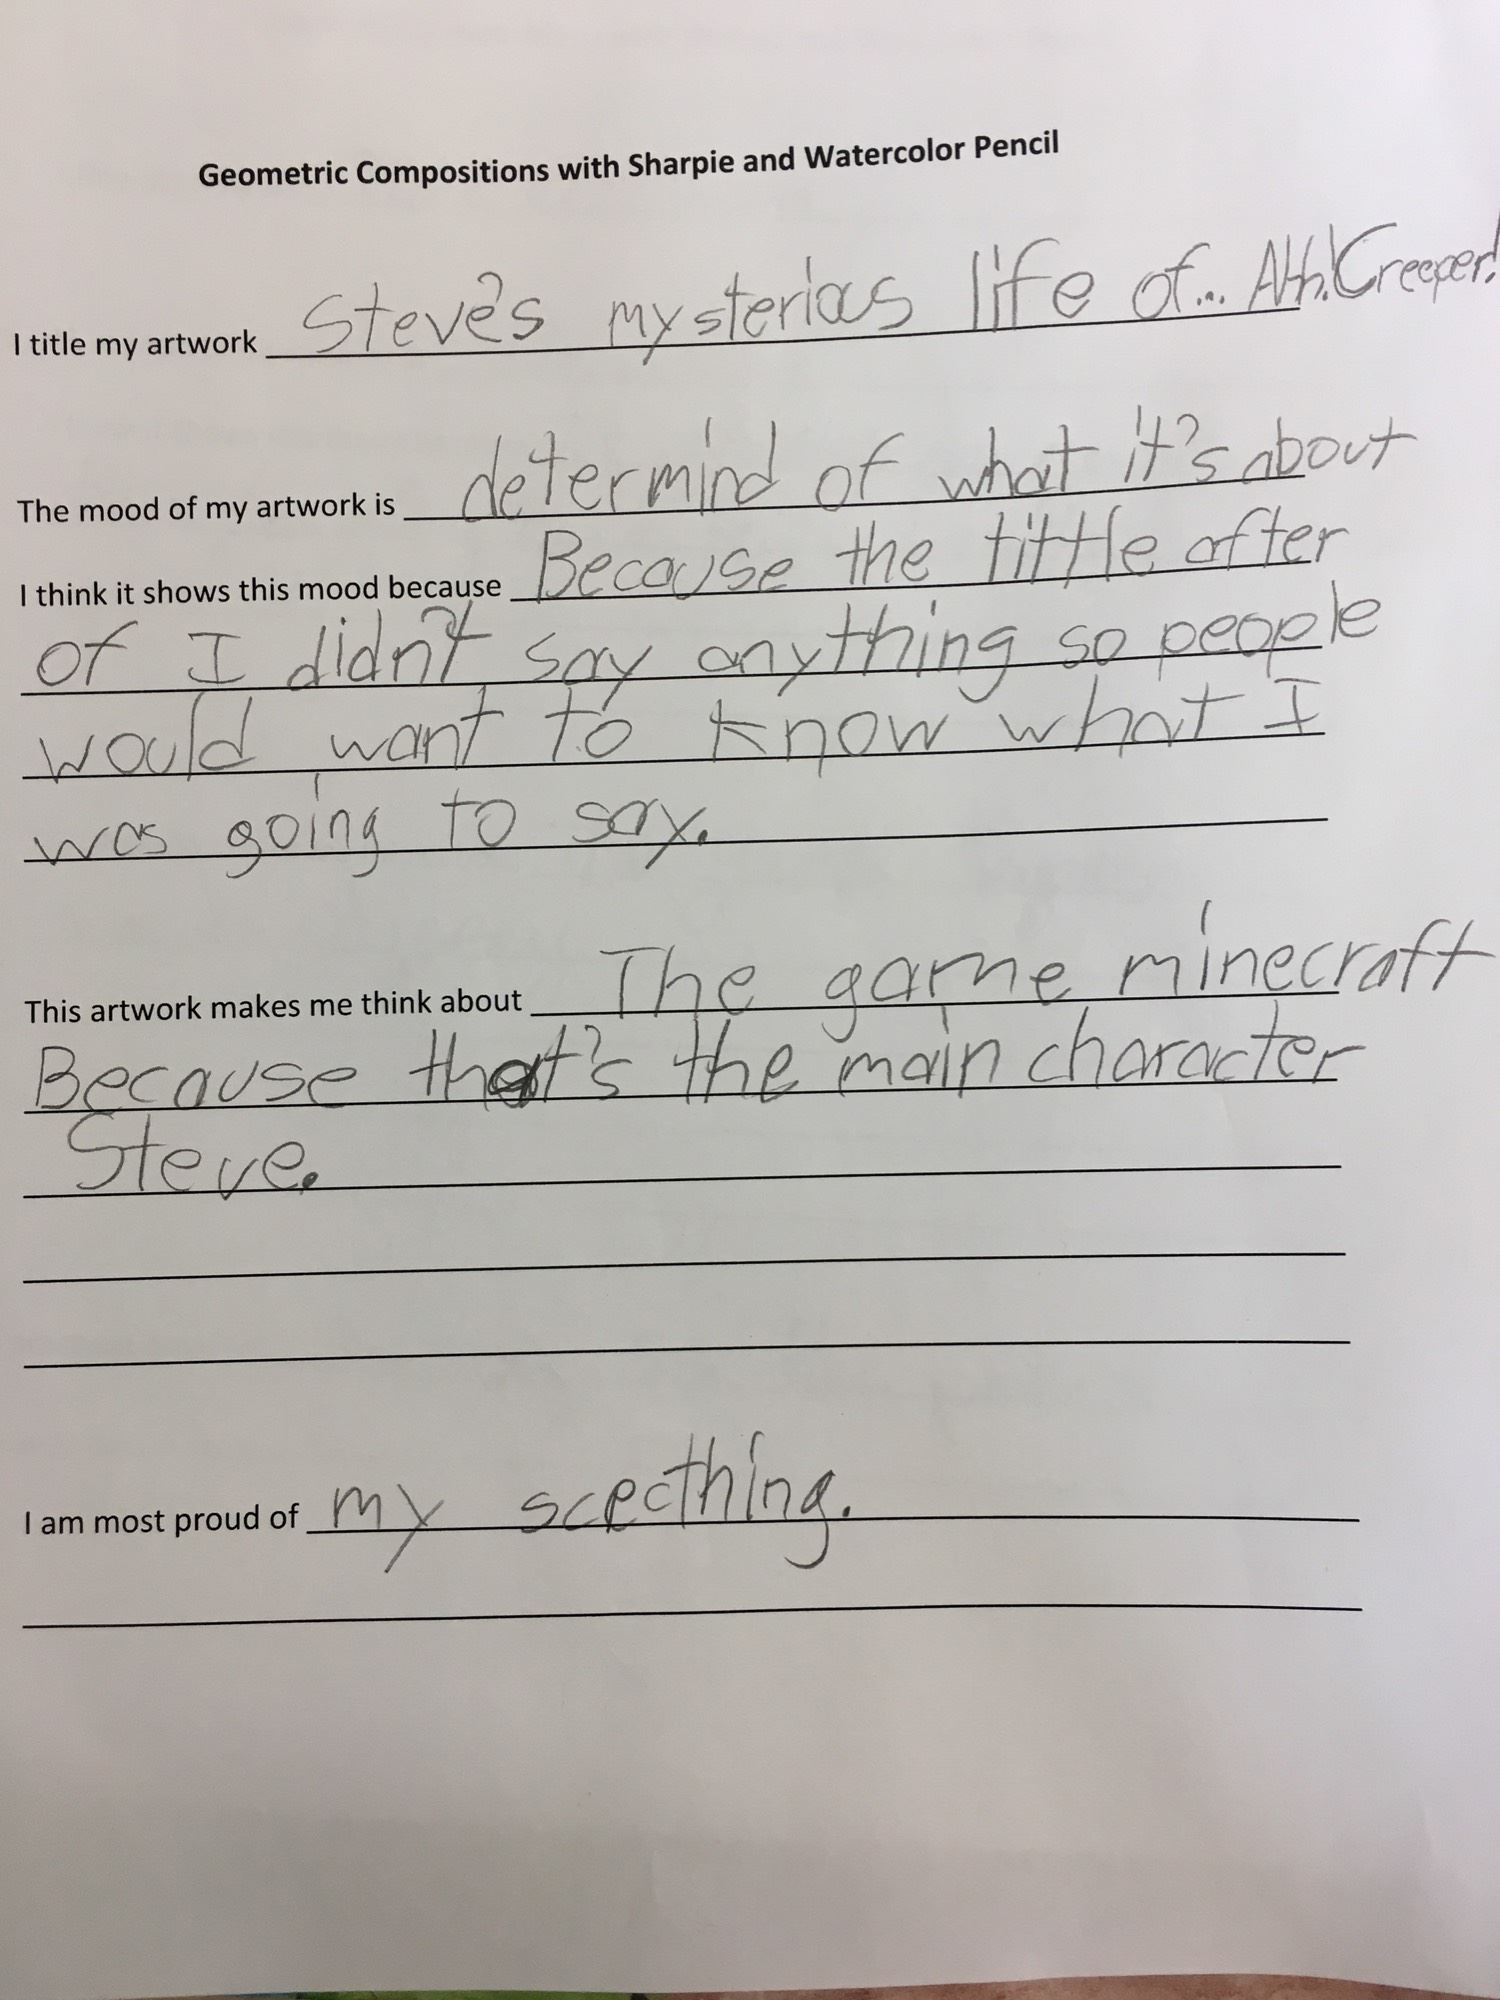 Geometric Compositions with Sharpie and Watercolor Pencil
I title my artwork Steve's mysterios life of... Ahh! Creeper!
The mood of my artwork is determind of what it's about
I think it shows this mood because Because the tittle after
of I didn't say anything so people
would want to know what I
was going to say.
This artwork makes me think about The game minecraft
Because that's the main character
Steve.
I am most proud of my scecthing.